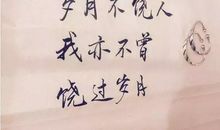 岁月不饶人
我亦不曾
饶过岁月